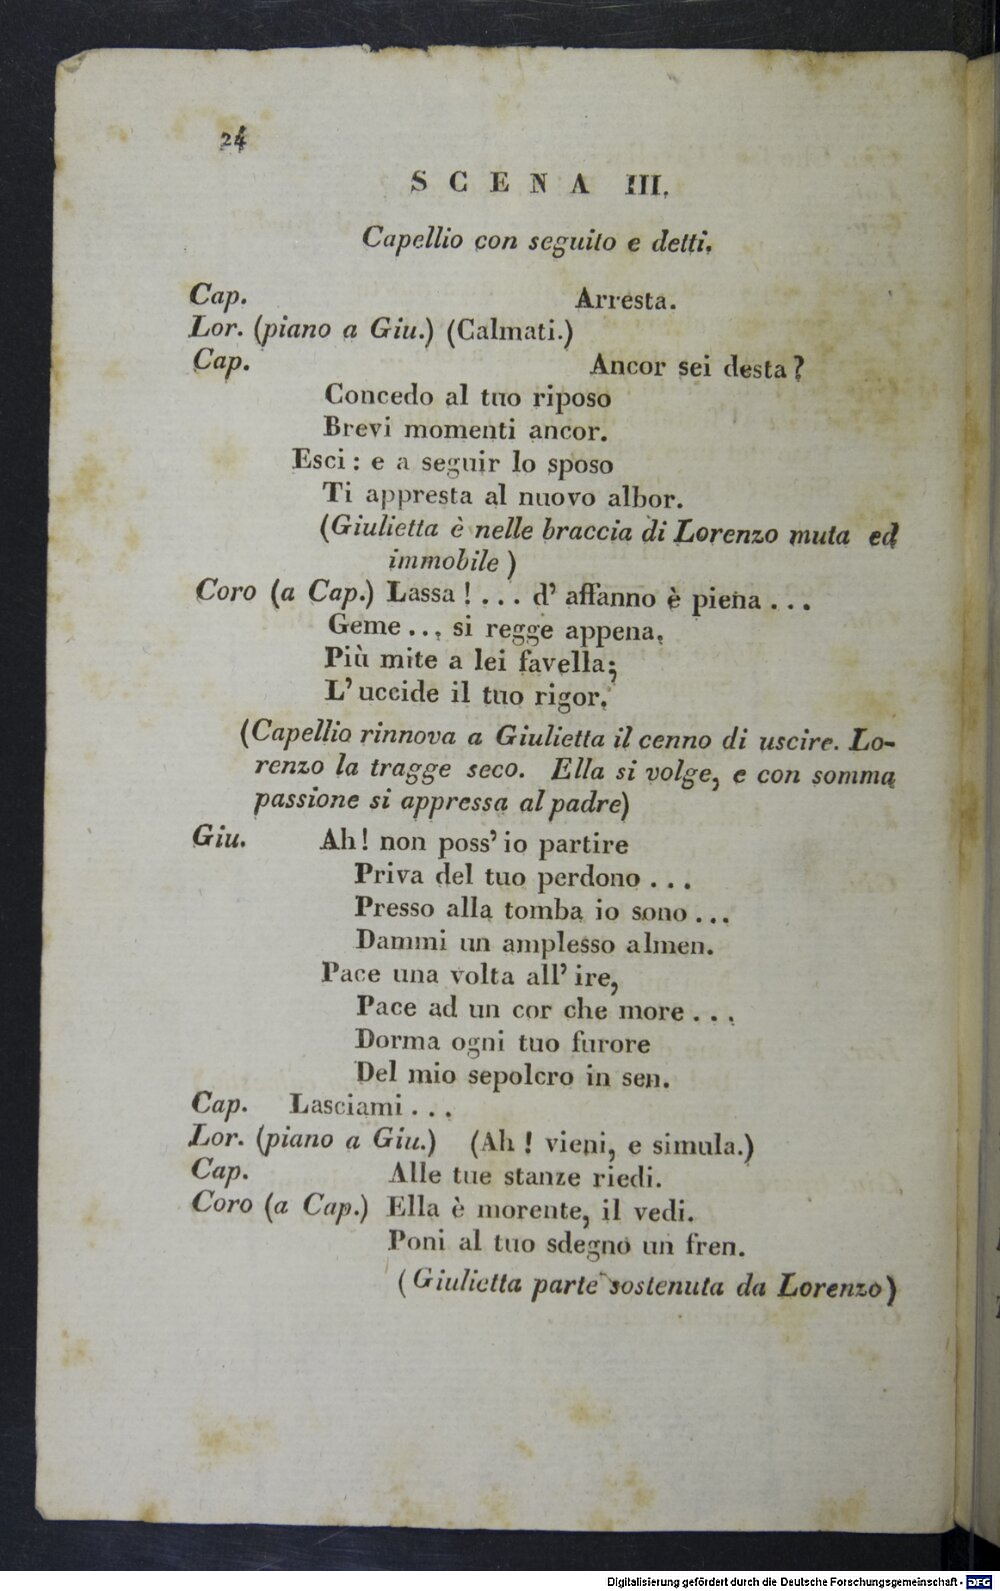 24
SCENA III.
Capellio con seguito e detti.
Cap. Arresta.
Lor. (piano a Giu.) (Calmati.)
Cap. Ancor sei desta?
Concedo al tuo riposo
Brevi momenti ancor.
Esci: e a seguir lo sposo
Ti appresta al nuovo albor.
(Giulietta è nelle braccia di Lorenzo muta ed
immobile)
Coro (a Cap.) Lassa!... d' affanno è piena...
Geme... si regge appena.
Più mite a lei favella;
L' uccide il tuo rigor.
(Capellio rinnova a Giulietta il cenno di uscire. Lo-
renzo la tragge seco. Ella si volge, e con somma
passione si appressa al padre)
Giu. Ah! non poss' io partire
Priva del tuo perdono...
Presso alla tomba io sono...
Dammi un amplesso almen.
Pace una volta all' ire,
Pace ad un cor che more...
Dorma ogni tuo furore
Del mio sepolcro in sen.
Cap. Lasciami...
Lor. (piano a Giu.) (Ah! vieni, e simula.)
Cap. Alle tue stanze riedi.
Coro (a Cap.) Ella è morente, il vedi.
Poni al tuo sdegno un fren.
(Giulietta parte sostenuta da Lorenzo)
Digitalisierung gefördert durch die Deutsche Forschungsgemeinschaft - DFG